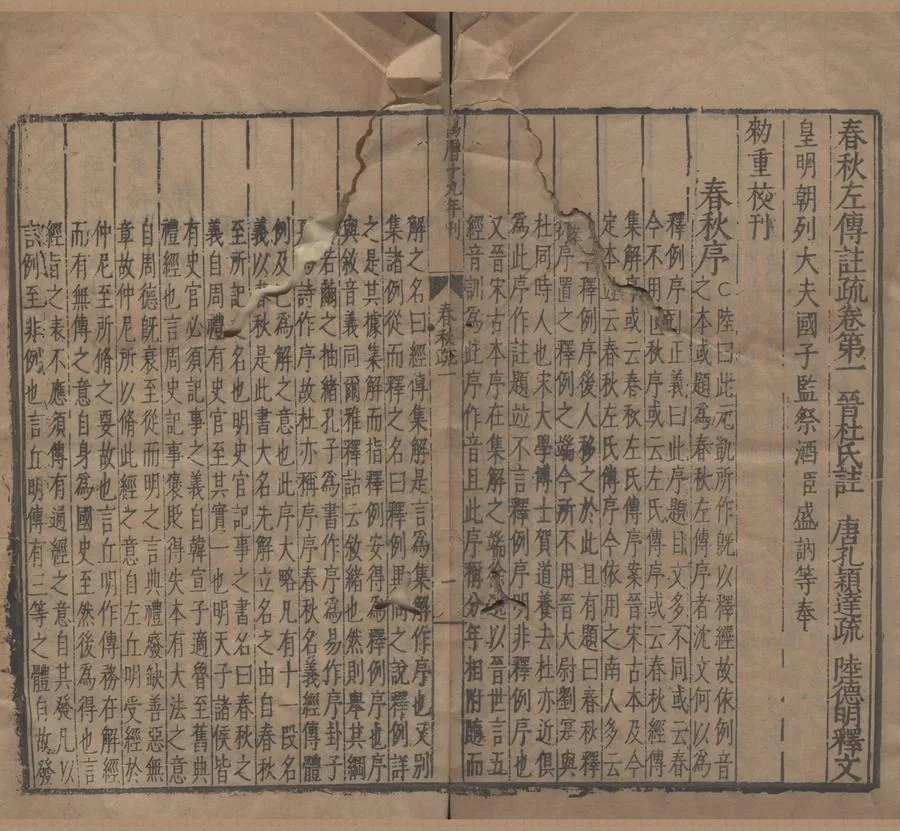 春秋左傳註疏卷第一 晉杜氏註 唐孔穎達疏 陸德明釋文
皇明朝列大夫國子監祭酒臣盛訥等奉
勅重校刊
春秋序 ○陸曰此元凱所作旣以釋經故依例音
之本或題爲春秋左傳序者沈文何以爲
釋例序 正義曰此序題目文多不同或云春
今不用 秋序或云左氏傳序或云春秋經傳
集解序或云春秋左氏傳序案晉宋古本及今
定本竝云春秋左氏傳序今依用之南人多云
此本釋例序後人移之於此且有題曰春秋釋
例序置之釋例之端今所不用晉大尉劉寔與
杜同時人也宋大學博士賀道養去杜亦近俱
爲此序作註題竝不言釋例序明非釋例序也
又晉宋古本序在集解之端徐邈以晉世言五
經音訓爲此序作音且此序稱分年相附隨而
萬曆十九年刊
春秋疏一
一
解之名曰經傳集解是言爲集解作序也又別
集諸例從而釋之名曰釋例異同之說釋例詳
之是其據集解而指釋例安得爲釋例序也序
與敘音義同爾雅釋詁云敘緒也然則舉其綱
若繭之抽緒孔子爲書作序爲易作序卦子
夏爲詩作序故杜亦稱序序春秋名義經傳體
例及己爲解之意也此序大略凡有十一段名
義以春秋是此書大名先解立名之由自春秋
至所記之名也明史官記事之書名曰春秋之
義自周禮有史官至其實一也明天子諸侯皆
有史官必須記事之義自韓宣子適魯至舊典
禮經也言周史記事褒貶得失本有大法之意
自周德旣衰至從而明之言典禮廢缺善惡無
章故仲尼所以脩此經之意自左丘明受經於
仲尼至所脩之要故也言丘明作傳務在解經
而有無傳之意自身爲國史至然後爲得也言
經旨之表不應須傳有通經之意自其發凡以
言例至非例也言丘明傳有三等之體自故發